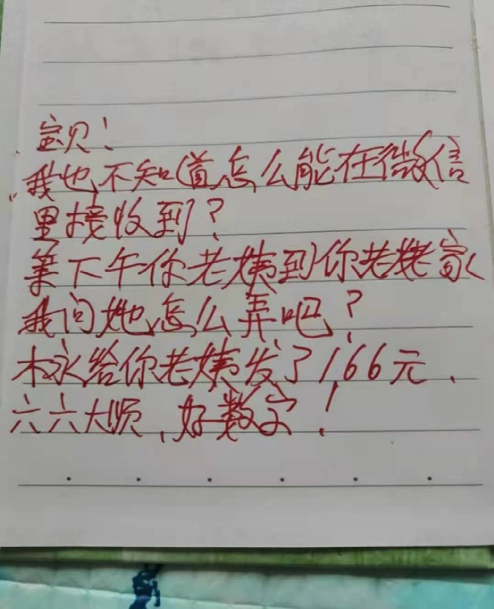 宝贝!
我也不知道怎么能在微信
里接收到?
等下午你老姨到你老姥家
我问她怎么弄吧?
木永给你老姨发了166元.
六六大顺,好数字!